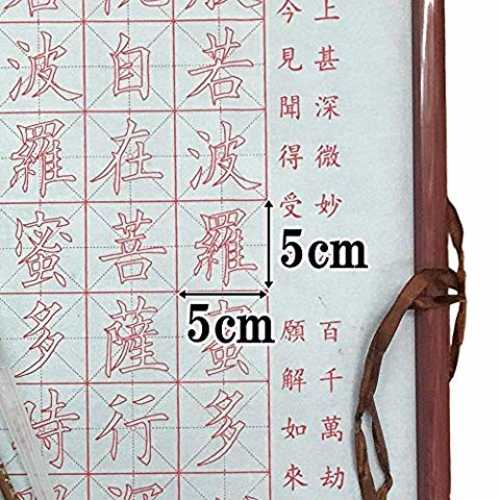 上甚深微妙 百千萬劫
今見聞得受 願解如來
若波羅蜜多
自在菩薩行深
波羅蜜多時
5cm
5cm